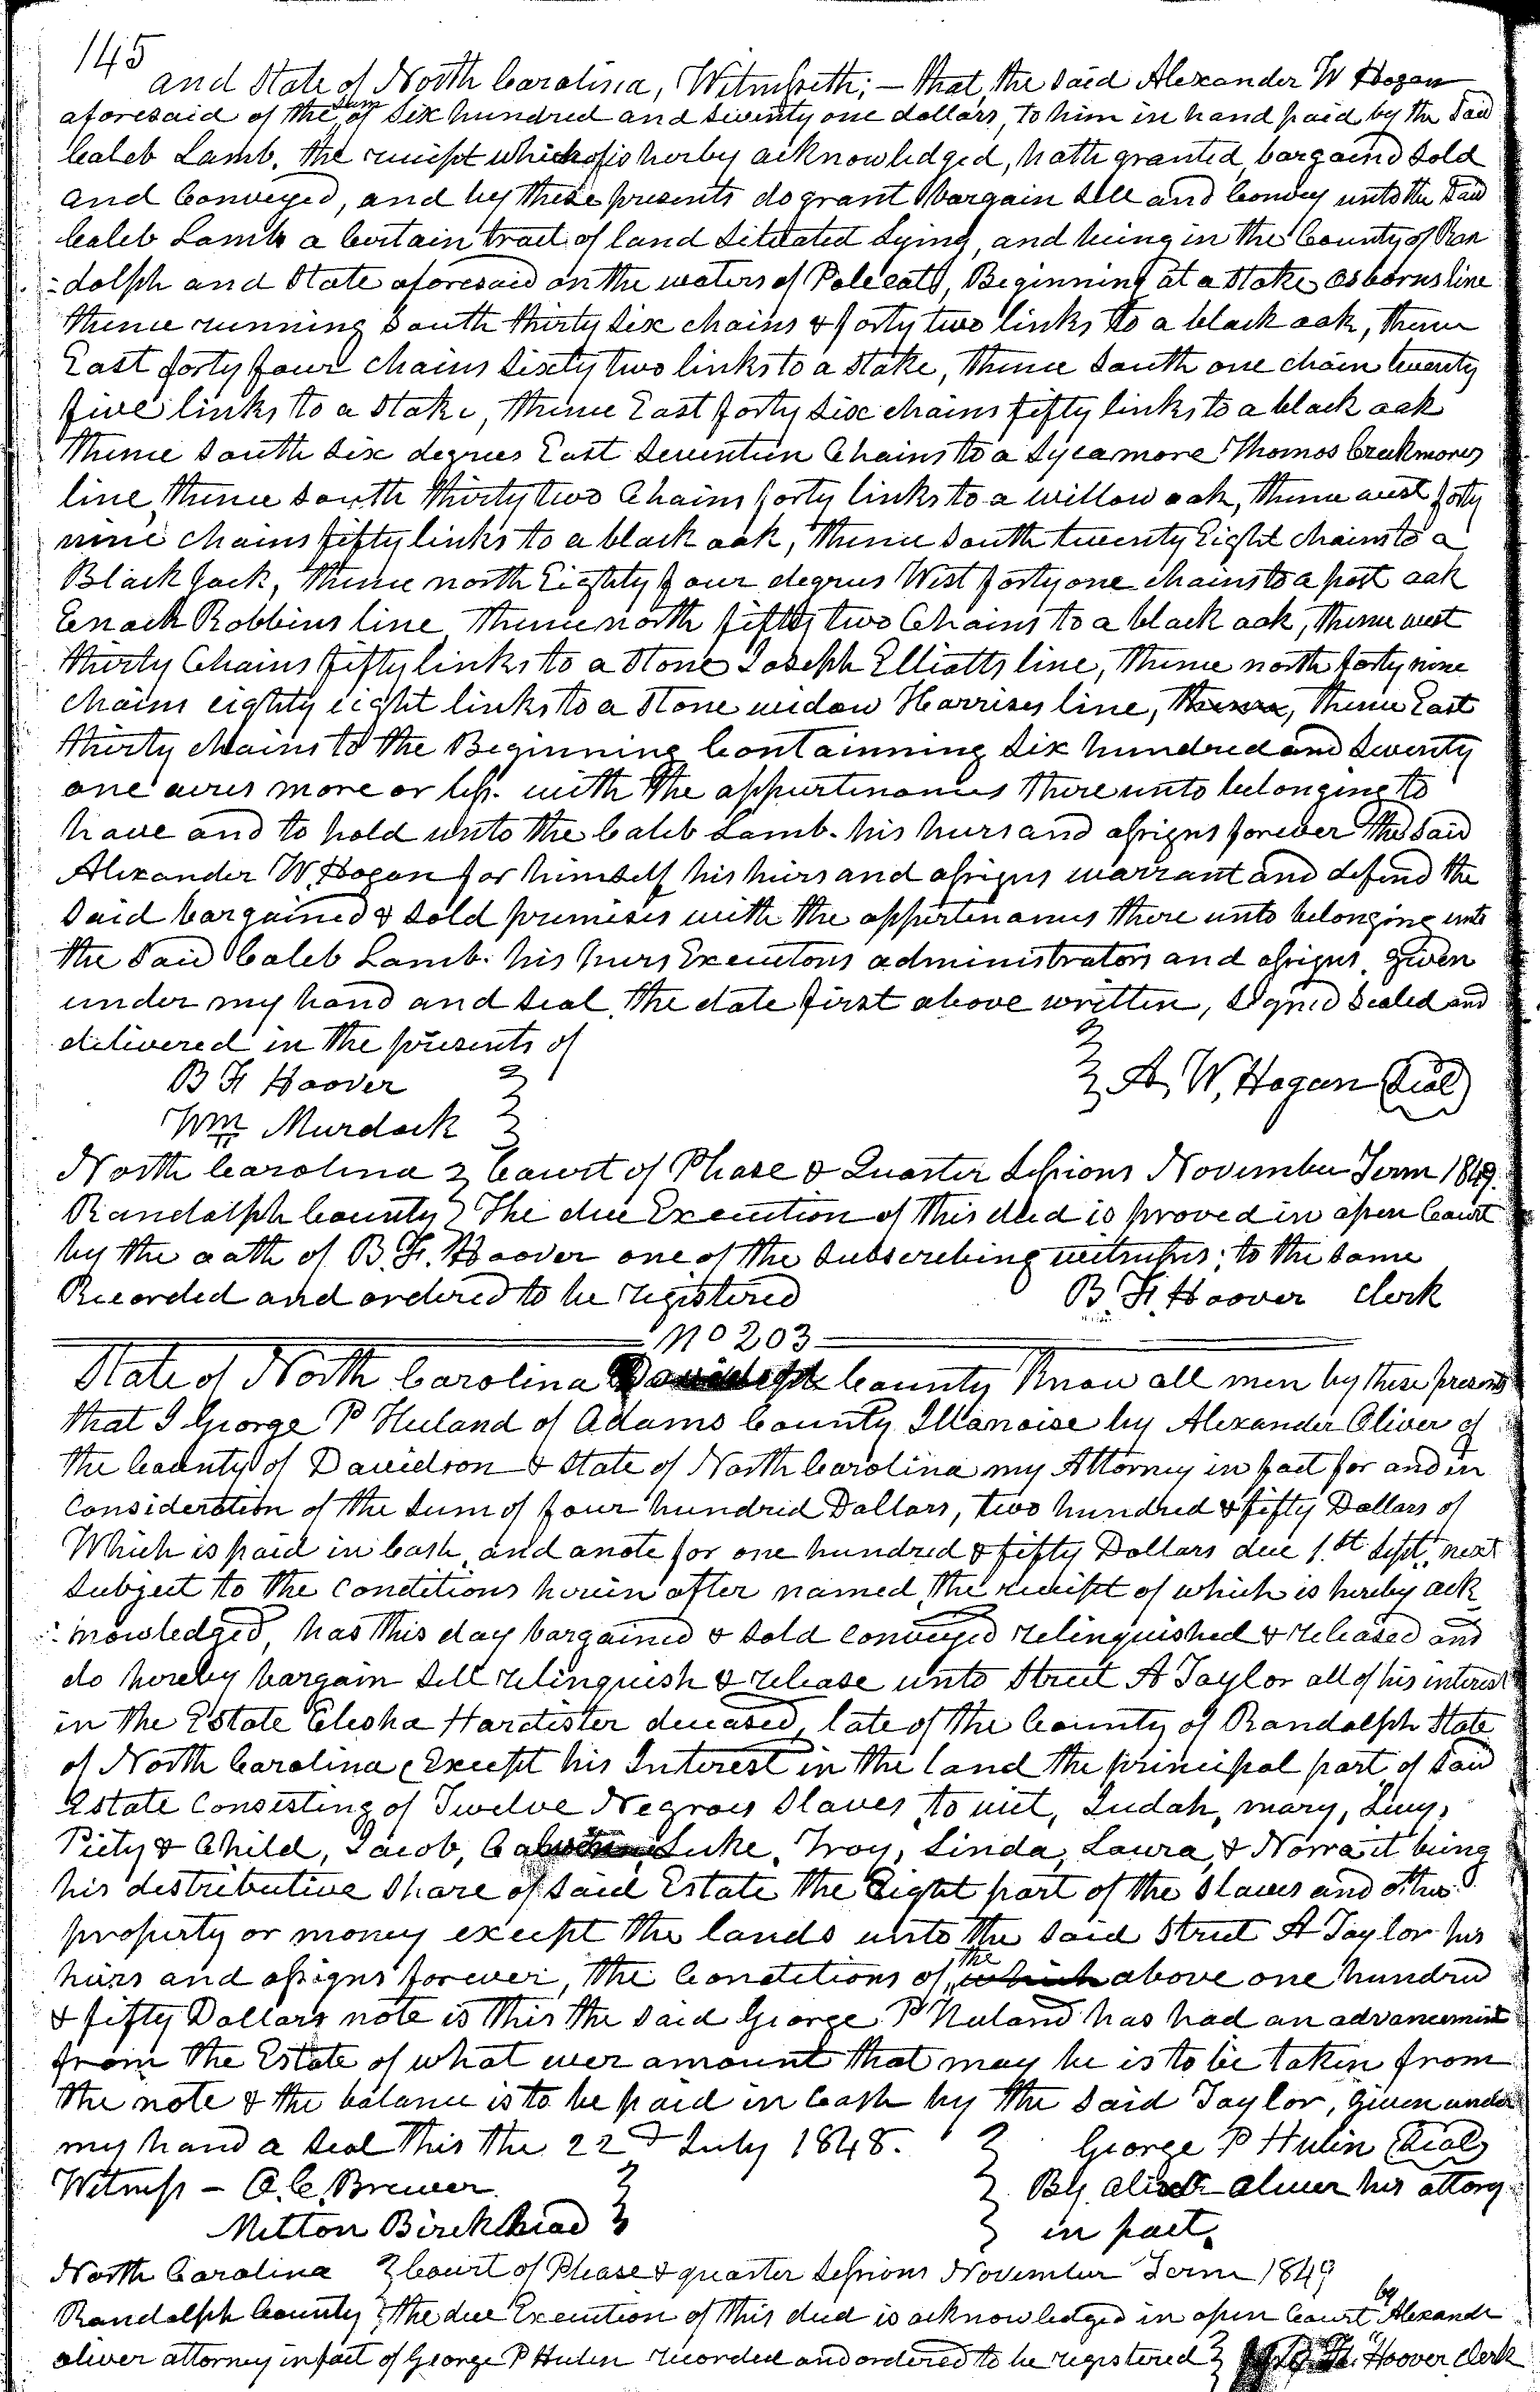 145
and State of North Carolina, Witnesseth; – that, the said Alexander W Hogan
aforesaid of the sum of Six hundred and Seventy one dollars, to him in hand paid by the Said
Caleb Lamb, the reciept which of is herby acknowledged, hath granted, bargaind Sold
and Conveyed, and by these presents do grant bargain sell and Convey unto the Said
Caleb Lamb a Certain tract of land Situated Lying, and being in the County of Ran
-dolph and State aforesaid on the waters of Pole cats, Beginning at a Stake Osborns line
thence running South thirty six chains & forty two links to a black oak, thence
East forty four chains Sixty two links to a Stake, thence South one chain twenty
five links to a Stake, thence East forty six chains fifty links to a black oak
thence South six degrees East Seventeen Chains to a Sycamore Thomas Breakmores
line, thence South thirty two Chains forty links to a willow oak, thence west forty
nine chains fifty links to a black oak, thence South twenty Eight chains to a
Black Jack, thence north Eighty four degrees West forty one chains to a post oak
Enoch Robbins line thence north fifty two Chains to a black oak, thence west
thirty Chains fifty links to a Stone Joseph Elliotts line, thence north forty nine
chains eighty eight links to a Stone widow Harrises line, thence, thence East
thirty chains to the Beginning Containning Six hundred and Seventy
one acres more or less. with the appurtenances there unto belonging to
have and to hold unto the Caleb Lamb. his heirs and assigns forever the Said
Alexander W. Hogan for himself his heirs and assigns warrant and defend the
Said bargained & Sold premises with the appertenances there unto belonging unto
the Said Caleb Lamb. his heirs Executors administrators and assigns. Given
under my hand and Seal, the date first above written, Signed Sealed and
delivered in the presents of
B F Hoover
A, W, Hogan (Seal)
Wm Murdock
North Carolina } Court of Please & Quarter Sessions November Term 1849.
Randolph County } The due Execution of this deed is proved in open Court
by the oath of B. F. Hoover one of the Subscribing witnesses; to the same
Recorded and ordered to be registered B. F. Hoover Clerk
No 203
State of North Carolina County Know all men by these presents
that I George P Huland of Adams County Illanoise by Alexander Oliver of
the County of Davidson & State of North Carolina my Attorney in fact for and in
Consideration of the Sum of four hundred Dollars, two hundred & fifty Dollars of
Which is paid in Cash, and a note for one hundred & fifty Dollars due 1.st Sept. next
Subject to the Conditions herein after named, the reciept of which is hereby ack
-nowledged, has this day bargained & Sold conveyed relinquished & released and
do hereby bargain Sell relinquish & release unto Street A Taylor all of his interest
in the Estate Elisha Hardister deceased, late of the County of Randolph State
of North Carolina (Except his Interest in the land the principal part of Said
Estate Consesting of Twelve Negroes Slaves, to wit, Judah, mary, Lucy,
Piety & Child, Jacob, Luke, Troy, Linda, Laura, & Norra it being
his distributive Share of Said Estate the Eight part of the Slaves and other
property or money except the lands unto the Said Street A Taylor his
heirs and assigns forever, the Conditions of the which above one hundred
& fifty Dollars note is this the Said George P Huland has had an advancement
from the Estate of what ever amount that may be is to be taken from
the note & the balance is to be paid in Cash by the Said Taylor, Given under
my hand a Seal this the 22d July 1848. George P Hulin (Seal)
Witness – A. C. Brewer By. Alexr Oliver his attory
Milton Birckhead in fact,
North Carolina } Court of Please & quarter Sessions November Term 1849
Randolph County } the due Execution of this deed is acknowledged in open Court by Alexandr
Oliver attorney in fact of George P Hulin recorded and ordered to be registered } B. F. Hoover Clerk